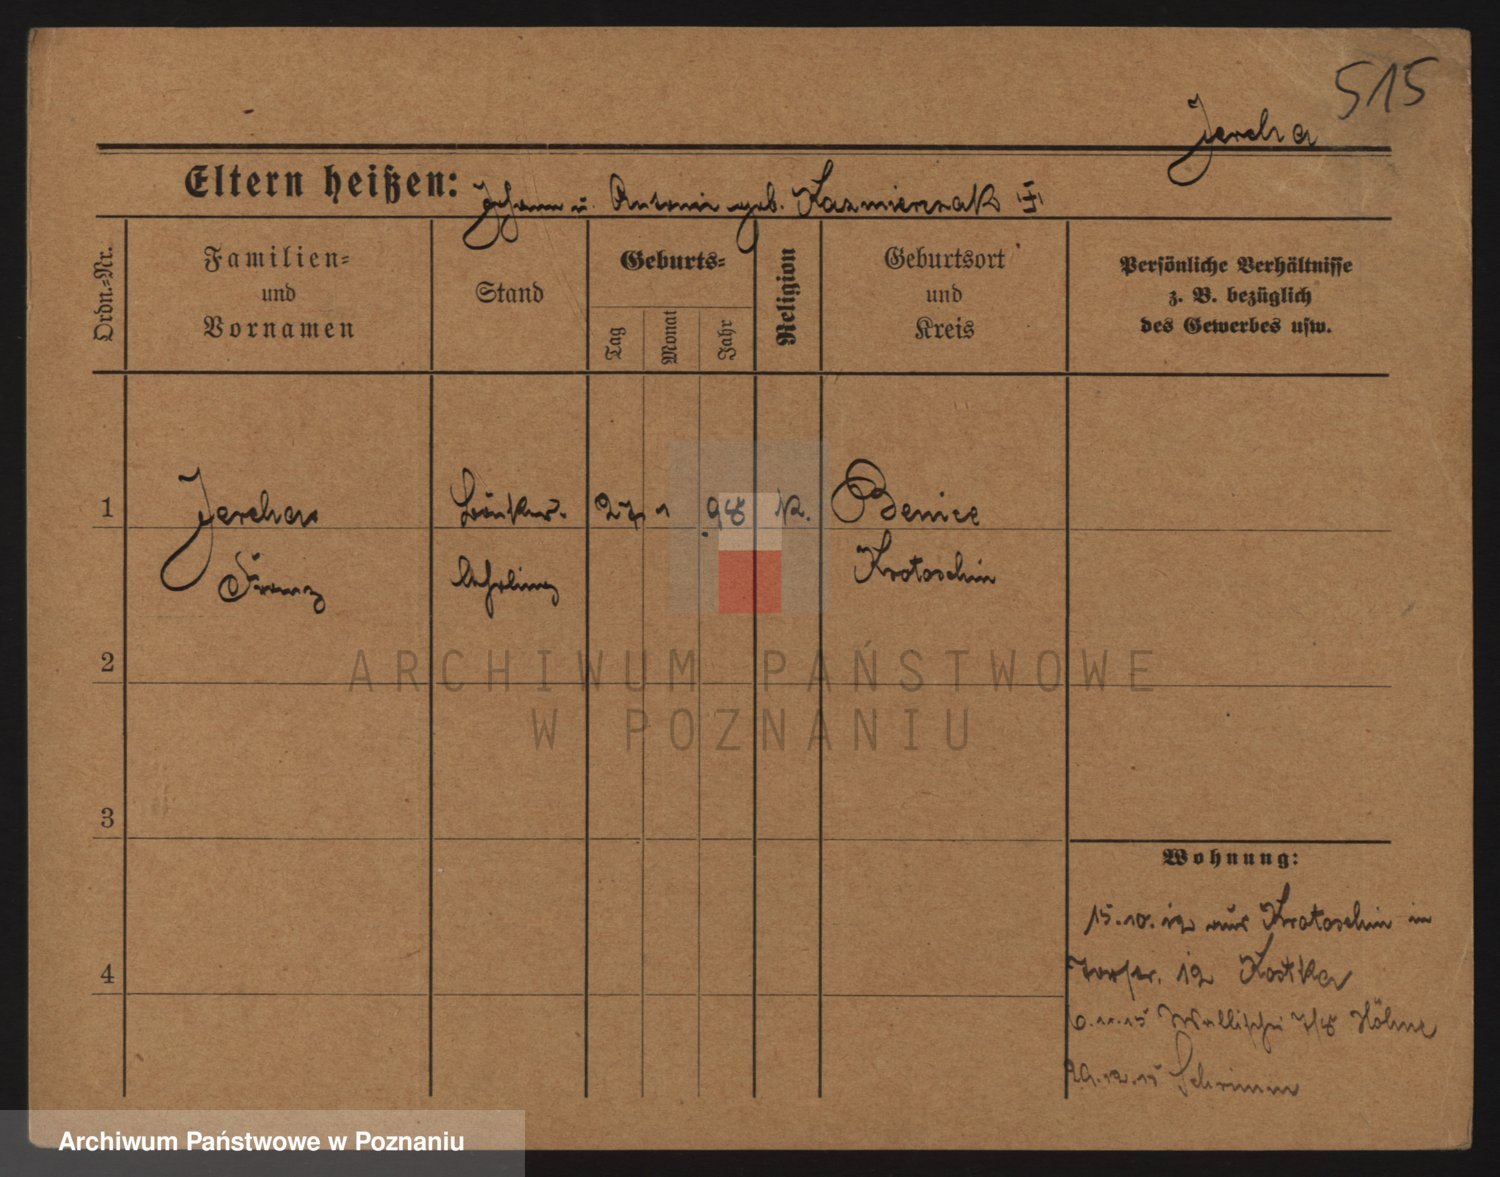 515
Jercha
Eltern heißen: Johann u. Antonie geb. Kazmierzak
Ordn.-Nr.
Familien- und Vornamen
Stand
Geburts-
Tag
Monat
Jahr
Religion
Geburtsort und Kreis
Persönliche Verhältnisse
z. B. bezüglich
des Gewerbes usw.
1 Jercha 27 1 98 K. Benice
Franz lehrling Krotoschin
2
ARCHIWUM PAŃSTWOWE
W POZNANIU
3
Wohnung:
15.10.12 aus Krotoschin in
12 Kostka
4
6.11.15 Wallischei 7/8 Höhne
29.12.15 Schrimm
Archiwum Państwowe w Poznaniu